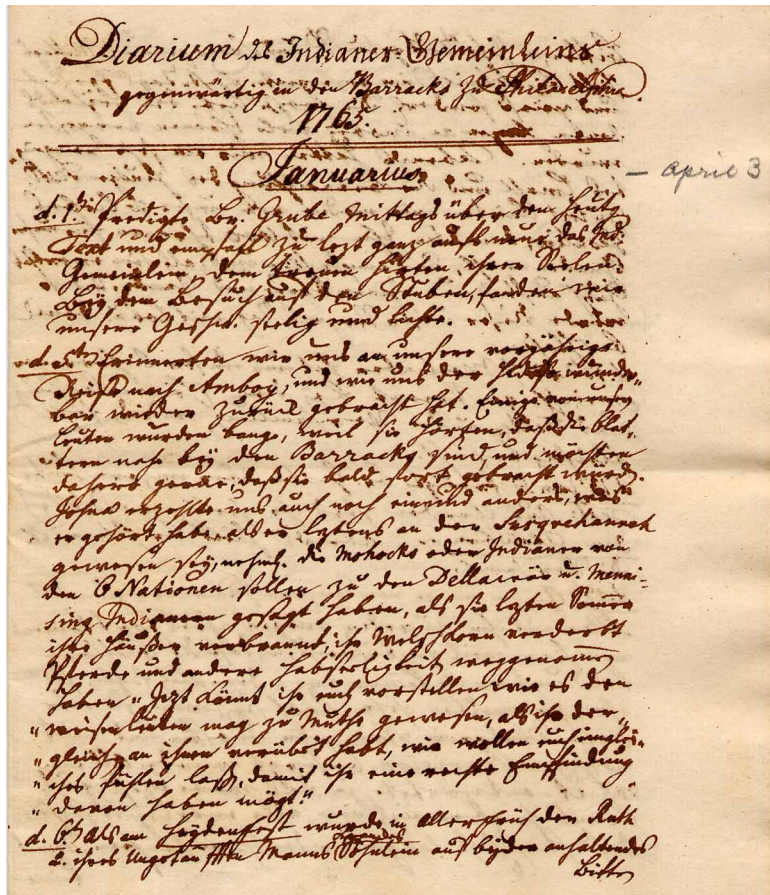 Diarium des Indianer-Gemeinleins
gegenwärtig in den Barracks zu Philadelphia.
1765.
Januarius
– april 3
d. 1t. Predigte Br. Grube Mittags über den heutg.
Text und empfahl zu lezt ganz aufs neue das Ind.
Gemeinlein, dem treuen Hirten ihrer Seelen.
Bey dem Besuch auf den Stuben, fanden wir
unsere Geschw. seelig und lichte.
d. 5t. Erinnerten wir uns an unsere vorjährige
Reise nach Amboy, und wie uns der Heiland wunder-
bar wieder zurück gebracht hat. Einige von unsern
Leuten wurden bange, weil sie hörten, daß die Blat-
tern nahe bey den Barracks sind, und möchten
dahero gerne, daß sie bald fort gebracht würden.
Johna erzehlte uns auch noch ein und anders, was
er gehört habe, als er leztens an der Susquehannah
gewesen sey, nehml. die Mohocks oder Indianer von
den 6 Nationen sollen zu den Dellawar u. Menni-
sing Indianern gesagt haben, als sie lezten Somer
ihre Häußer verbrannt, ihr Welschkorn verderbt
Pferde und andere Habseligkeit weggenomen
haben „Jezt könnt ihr euch vorstellen, wie es den
„weisen Leuten mag zu Muthe gewesen, als ihr der-
„gleich an ihnen verübet habt, wir wollen euch unglei-
„ches fühlen laßen, damit ihr eine rechte Empfindung
„davon haben mögt."
d. 6t. als am Heydenfest wurde in aller früh der Ruth
u. ihres Manns Söhnlein auf beyder anhaltendes
Bitten